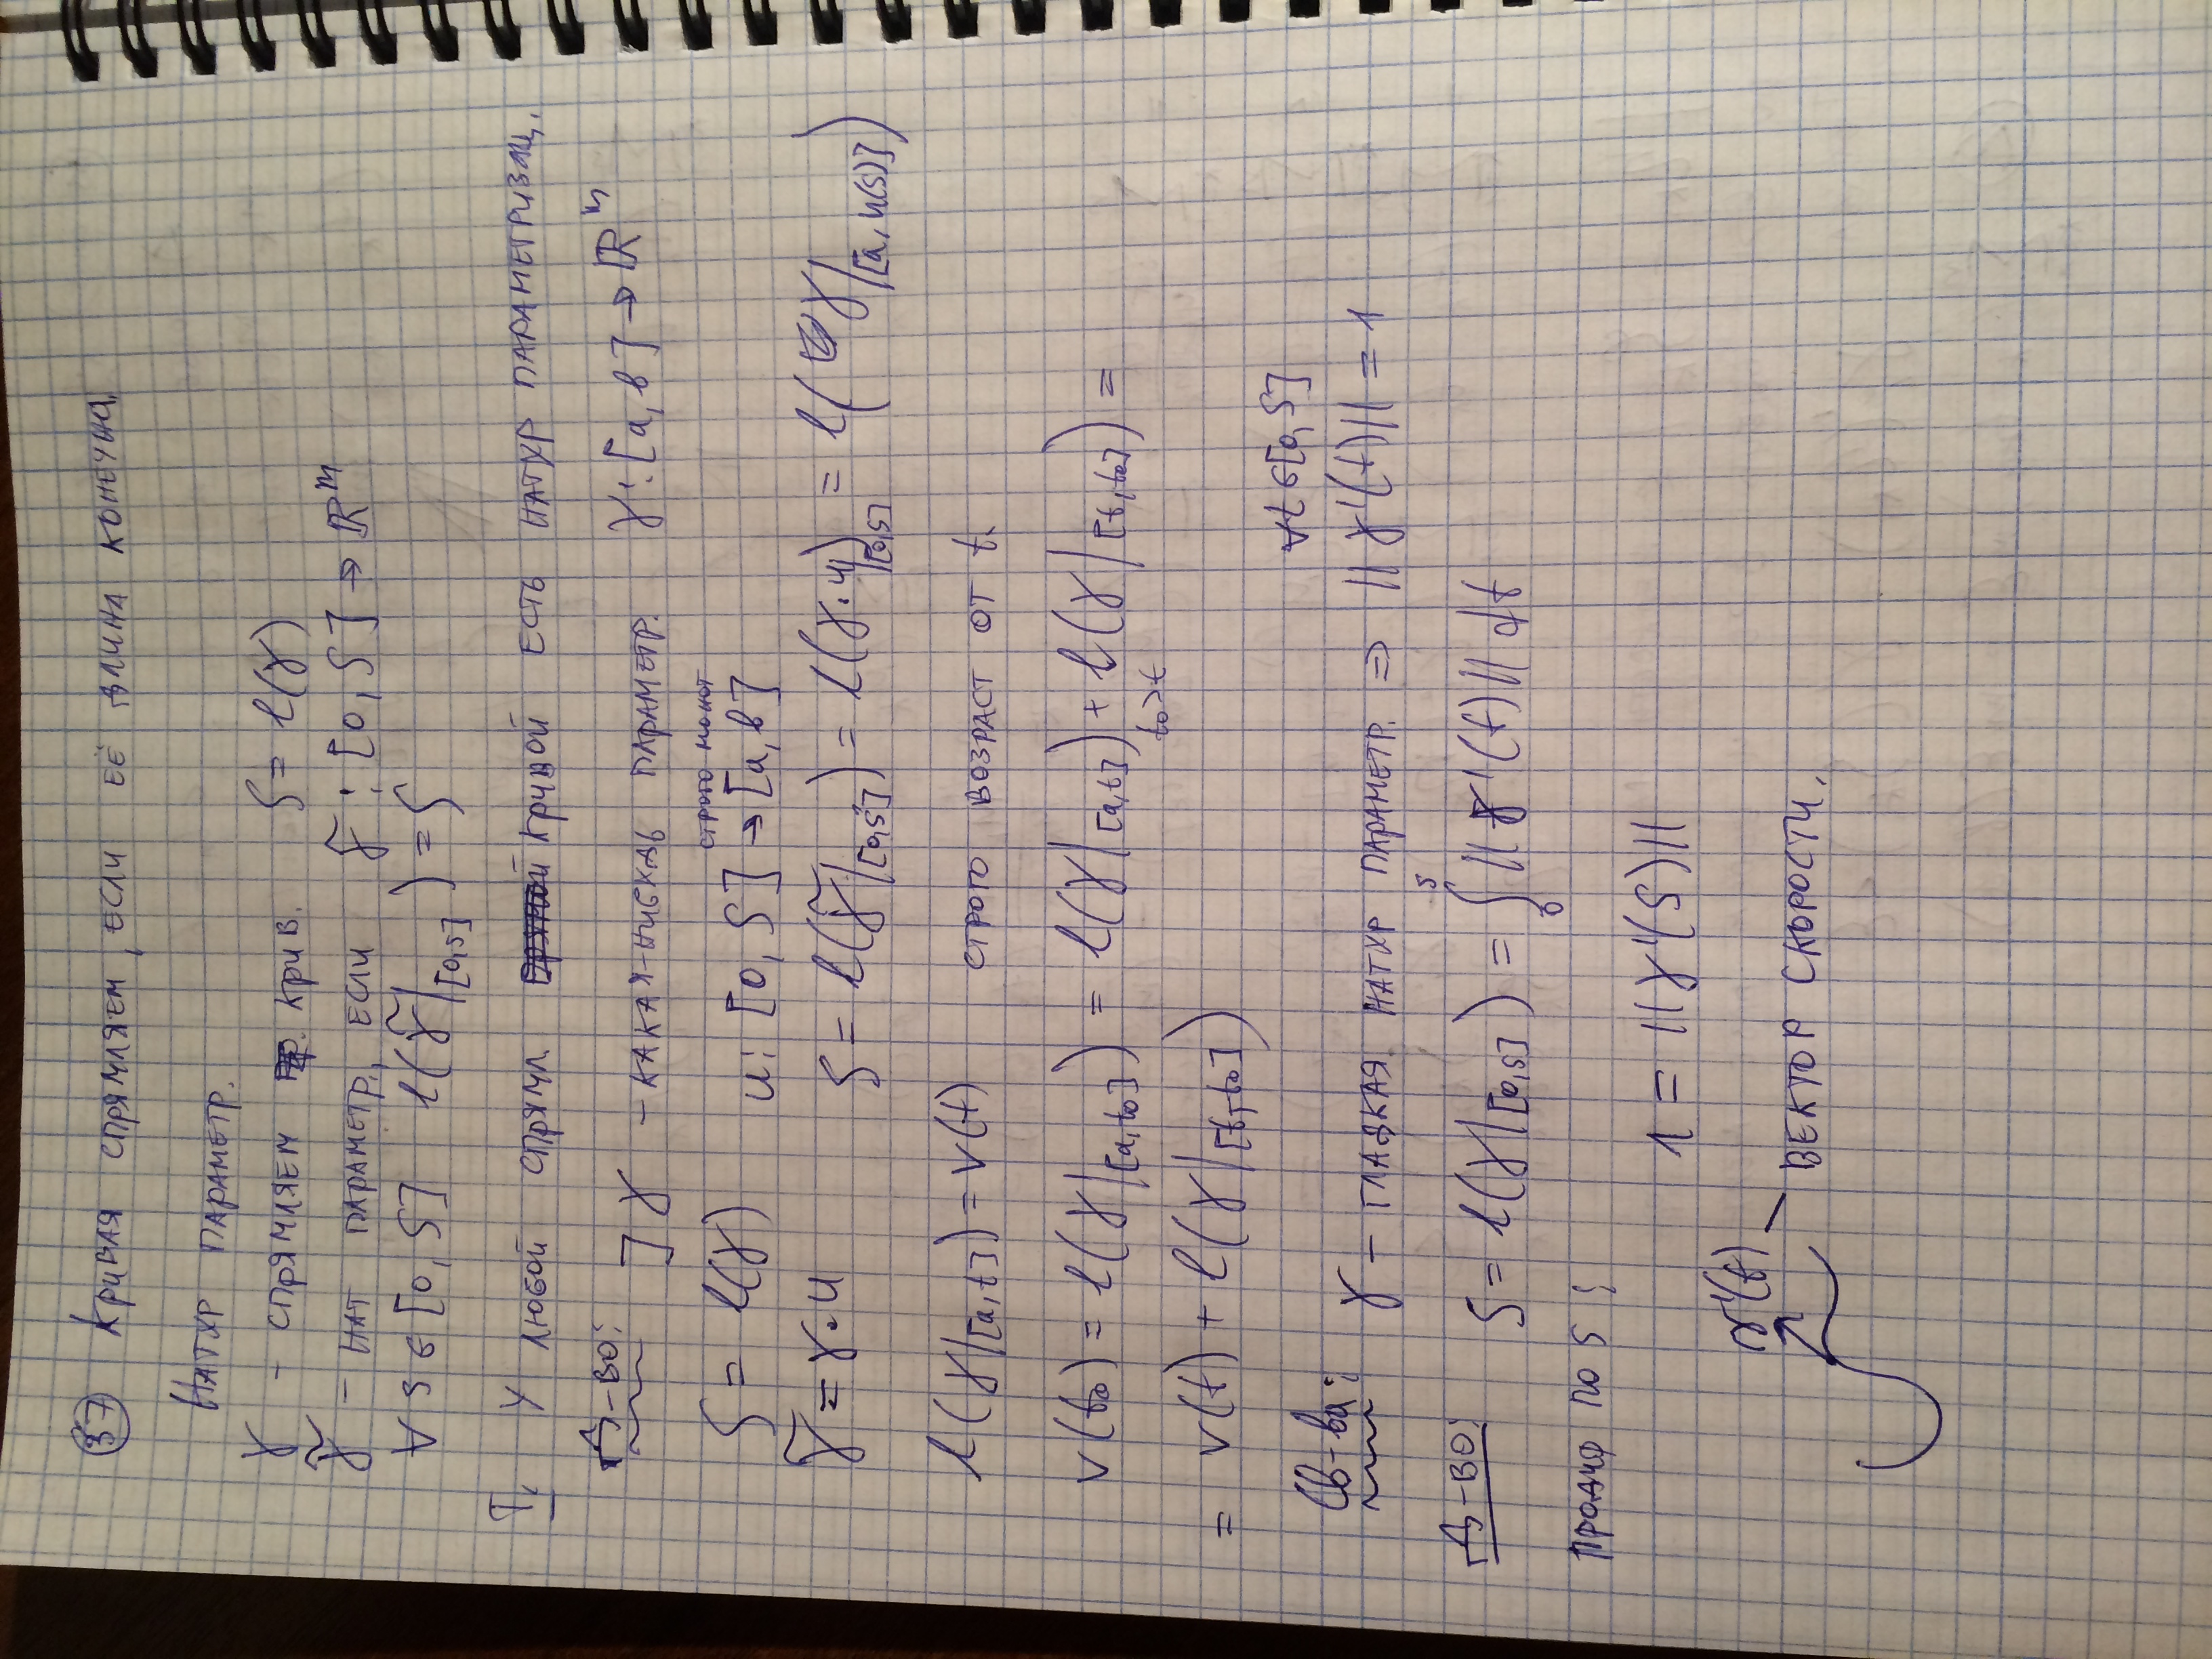 37 Кривая спрямляем, если её длина конечна.
Натур параметр.
γ – спрямляем крив. S = l(γ)
γ̃ – нат параметр., если γ̃ : [0, S] → ℝᵐ
∀ s ∈ [0, S] l(γ̃|[0,s]) = s
Т. У любой спрямл. кривой есть натур параметризац.
Д-во: ] γ – какая-нибудь параметр. γ: [a, b] → ℝᵐ
строго монот
S = l(γ) u: [0, S] → [a, b]
γ̃ = γ∘u s = l(γ̃|[0,s]) = l(γ∘u|[0,s]) = l(γ|[a, u(s)])
l(γ|[a,t]) = v(t) строго возраст от t.
v(t₀) = l(γ|[a,t₀]) = l(γ|[a,t]) + l(γ|[t,t₀]) =
t₀>t
= v(t) + l(γ|[t,t₀])
∀t ∈ [0, S]
Св-ва: γ – гладкая натур параметр. ⇒ ||γ'(t)|| = 1
Д-во: s = l(γ|[0,s]) = ∫₀ˢ ||γ'(t)|| dt
Продиф по s:
1 = ||γ'(s)||
γ'(t)
вектор скорости.